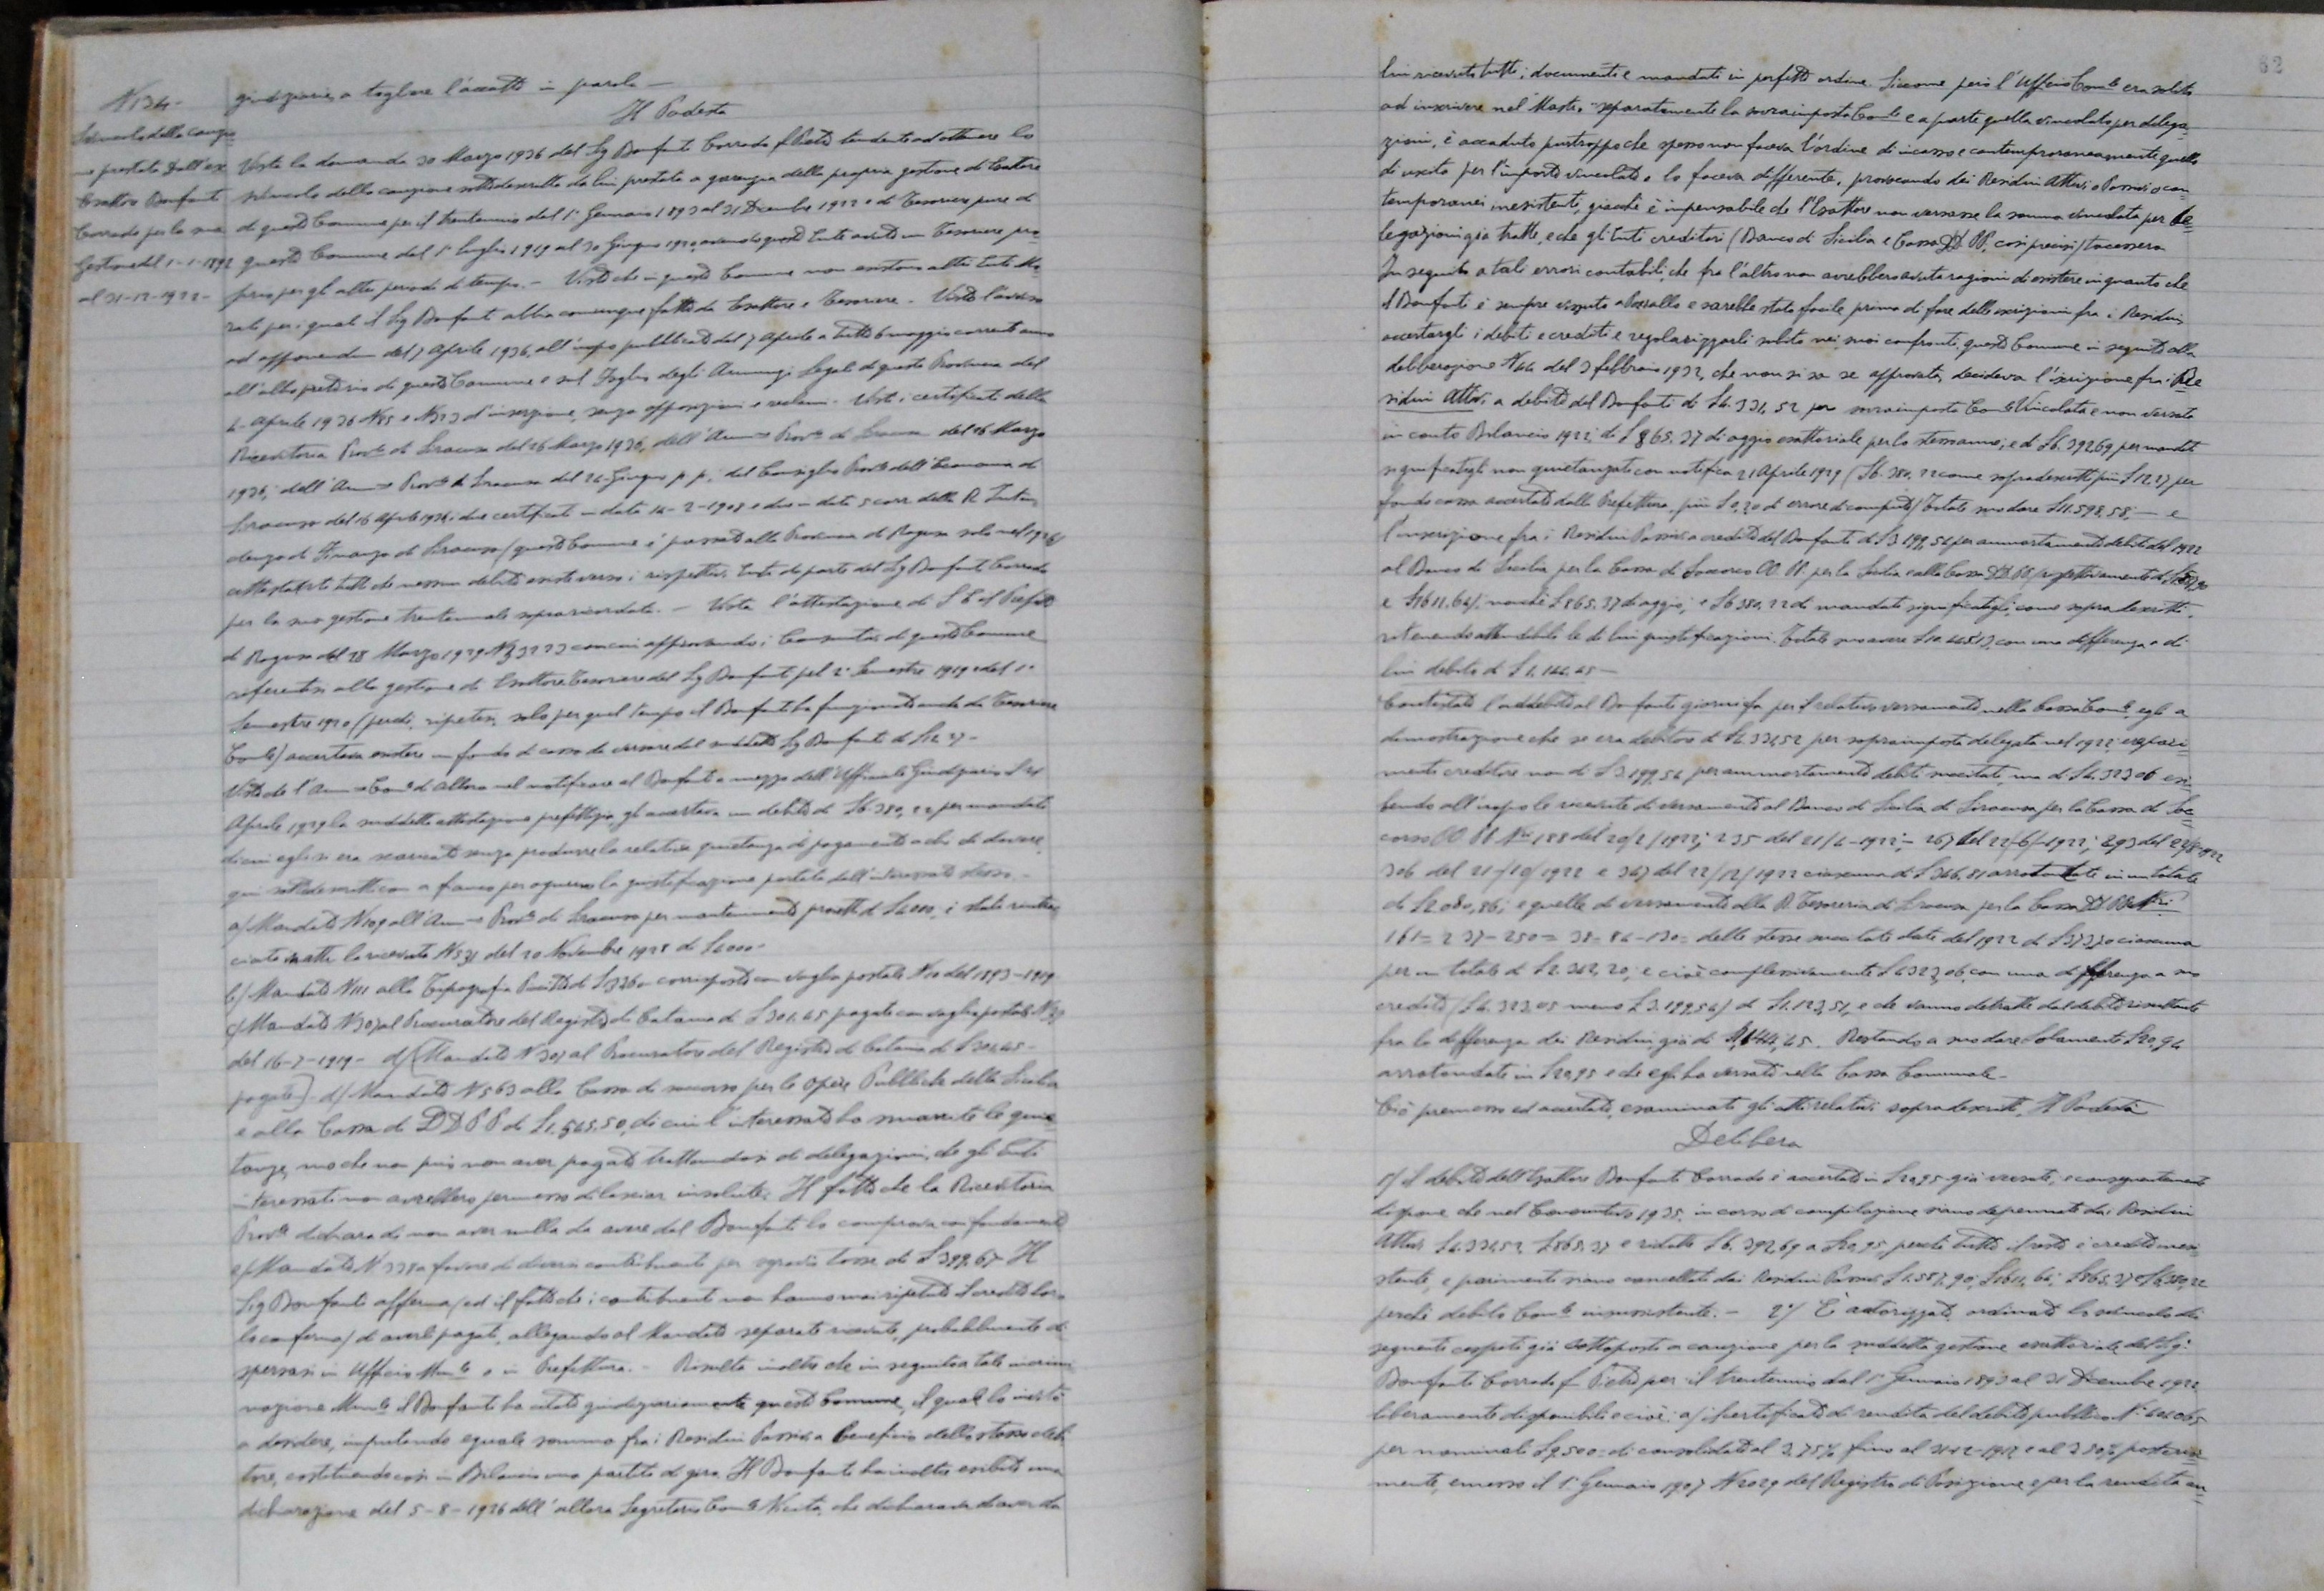 N 134 -
Svincolo della cauzio
ne prestata dall'ex
Esattore Bonfanti
Corrado per la sua
Gestione dal 1-1-1893
al 31-12-1922 -
giudiziario a togliere l'accatto in parola —
Il Podestà
Vista la domanda 30 Marzo 1936 del Sig Bonfanti Corrado f Pietro tendente ad ottenere lo
svincolo della cauzione sottodescritta da lui prestata a garenzia della propria gestione di Esattore
di questo Comune per il trentennio dal 1° Gennaio 1893 al 31 Dicembre 1922 e di Tesoriere pure di
questo Comune dal 1° luglio 1919 al 30 Giugno 1920, avendo questo Ente avuto un Tesoriere pro
prio per gli altri periodi di tempo. - Visto che in questo Comune non esistono altri Enti Mo
rali per i quali il Sig Bonfanti abbia comunque fatto da Esattore e Tesoriere - Visto l'avviso
ad opponendum del 7 Aprile 1936, all'uopo pubblicato dal 7 Aprile a tutto 6 maggio corrente anno
all'albo pretorio di questo Comune e sul Foglio degli Annunzi Legali di questa Provincia del
4 Aprile 1936 N85 e N323 d'inserzione, senza opposizioni e reclami - Visti i certificati della
Ricevitoria Prov.le di Siracusa del 26 Marzo 1936, dell'Amm.ne Prov.le di Siracusa del 26 Marzo
1936; dell'Amm.ne Prov.le di Siracusa del 24 Giugno p. p.; del Consiglio Prov.le dell'Economia di
Siracusa del 16 Aprile 1936; due certificati in data 14-2-1907 e due in data 5 corr. della R. Inten
denza di Finanza di Siracusa (questo Comune è passato alla Provincia di Ragusa solo nel 1926)
attestanti tutti che nessun debito esiste verso i rispettivi Enti da parte del Sig Bonfanti Corrado
per la sua gestione trentennale sopraricordata. - Vista l'attestazione di S E il Prefetto
di Ragusa del 28 Marzo 1929 N 3223 con cui approvando i Consuntivi di questo Comune
referentisi alla gestione di Esattore Tesoriere del Sig Bonfanti pel 2° Semestre 1919 e del 1°
Semestre 1920 (perchè, ripetesi, solo per quel tempo il Bonfanti ha funzionato anche da Tesoriere
Com.le) accertava esistere un fondo di cassa da versare dal suddetto Sig Bonfanti di L12.27 -
Visto che l'Amm.ne Com.le d'allora nel notificare al Bonfanti a mezzo dell'Ufficiale Giudiziario il 21
Aprile 1929 la suddetta attestazione prefettizia, gli accertava un debito di L6.380,22 per mandati
di cui egli si era scaricato senza produrre la relativa quietanza di pagamento a chi di dovere,
qui sottodescritti con a fianco per ognuno la giustificazione portata dall'interessato stesso. -
a/ Mandato N109 all'Amm.ne Prov.le di Siracusa per mantenimento proietti di L4000, è stata rintrac
ciata in atti la ricevuta N531 del 20 Novembre 1928 di L4000 -
b/ Mandato N111 alla Tipografia di L133,60 corrisposto con vaglia postale N10 del 1893-1919
c/ Mandato N307 al Procuratore del Registro di Catania di L301.45 pagato con vaglia postale N39
del 16-7-1919 - d/ [Mandato N307 al Procuratore del Registro di Catania di L301,45 -
pagato] - d/ Mandato N563 alla Cassa di soccorso per le Opere Pubbliche della Sicilia
e alla Cassa di DD PP di L1.545.50, di cui l'interessato ha smarrite le quie
tanze, ma che non può non aver pagato trattandosi di delegazioni, che gli Enti
interessati non avrebbero permesso di lasciar insolute. Il fatto che la Ricevitoria
Prov.le dichiara di non aver nulla da avere dal Bonfanti lo comprova con fondamento
e/ Mandato N 338 a favore di diversi contribuenti per sgravio tasse di L399.67. Il
Sig Bonfanti afferma (ed il fatto che i contribuenti non hanno mai ripetuto il credito loro
lo conferma) di averli pagati, allegando al Mandato separate ricevute, probabilmente di
spersesi in Ufficio Mun.le o in Prefettura. - Risulta inoltre che in seguito a tale incrimi
nazione Mun.le il Bonfanti ha citato giudiziariamente questo Comune, il quale lo invitò
a desistere, imputando eguale somma fra i Residui Passivi a beneficio dello stesso debi
tore, costituendo così in Bilancio una partita di giro. Il Bonfanti ha inoltre esibito una
dichiarazione del 5-8-1926 dell'allora Segretario Com.le Nicita, che dichiarava di aver da
82
lui ricevuto tutti i documenti e mandati in perfetto ordine. Siccome però l'Ufficio Com.le era solito
ad inscrivere nel Mastro separatamente la sovraimposta Com.le e a parte quella vincolata per delega
zioni, è accaduto purtroppo che spesso non faceva l'ordine di incasso e contemporaneamente quello
di uscita per l'importo vincolato o lo faceva differente, provocando dei Residui Attivi o Passivi o con
temporanei inesistenti, giacchè è impensabile che l'Esattore non versasse la somma vincolata per de
legazioni già tratte, e che gli Enti creditori (Banco di Sicilia e Cassa DD PP, così precisi) tacessero
In seguito a tali errori contabili, che fra l'altro non avrebbero avuto ragioni di esistere in quanto che
il Bonfanti è sempre vissuto a Pozzallo e sarebbe stato facile prima di fare delle iscrizioni fra i Residui
accertargli i debiti e crediti e regolarizzarli subito nei suoi confronti, questo Comune in seguito alla
deliberazione N44 del 3 febbraio 1932, che non si sa se approvata, decideva l'iscrizione fra i Re
sidui Attivi a debito del Bonfanti di L4.331,52 per sovraimposta Com.le Vincolata e non versata
in conto Bilancio 1922; di L865.37 di aggio esattoriale per lo stesso anno; e di L6.392,69 per mandati
significatigli non quietanzati con notifica 21 Aprile 1929 (L6.380.22 come sopradescritti più L12.27 per
fondo cassa accertato dalla Prefettura, più L0,20 di errore di computo) Totale suo dare L11.598,58; — e
l'inscrizione fra i Residui Passivi a credito del Bonfanti di L3.199,54 per ammortamento debiti del 1922
al Banco di Sicilia per la Cassa di Soccorso OO. PP. per la Sicilia e alla Cassa DD PP (rispettivamente di L1587,90
e L1611.64); nonchè L865.37 di aggio; e L6380,22 di mandati significatigli, come sopra descritti,
ritenendo attendibili le di lui giustificazioni. Totale suo avere L10.445.13, con una differenza a di
lui debito di L1.144.45 —
Contestato l'addebito al Bonfanti giorni fa per il relativo versamento nella Cassa Com.le, egli a
dimostrazione che se era debitore di L4.331,52 per sopraimposta delegata nel 1922 era pari
menti creditore non di L3.199,54 per ammortamento debiti succitati, ma di L4.323.06 esi
bendo all'uopo le ricevute di versamento al Banco di Sicilia di Siracusa per la Cassa di Soc
corso OO PP. N.ri 188 del 20/2/1922; 235 del 21/4-1922; - 267 del 22/6/-1922; 293 del 22/8-1922
306 del 21/10/1922 e 347 del 22/12/1922 ciascuna di L346,81 arrotondate in un totale
di L2.080,86; e quelle di versamento alla R. Tesoreria di Siracusa per la Cassa DD PP N.ri
161 = 237 - 250 = 38 - 84 - 130 = delle stesse succitate date del 1922 di L373,70 ciascuna
per un totale di L2.242,20; e cioè complessivamente L4323,06 con una differenza a suo
credito (L4.323,05 meno L3.199,54) di L1.123,51, e che vanno detratte dal debito risultante
fra la differenza dei Residui, già di L1,144,45. Restando a suo dare solamente L20,94
arrotondate in L20,95 e che egli ha versato nella Cassa Comunale -
Ciò premesso ed accertato, esaminati gli atti relativi sopradescritti, Il Podestà
Delibera
1/ il debito dell'Esattore Bonfanti Corrado è accertato in L20,95 già versate, e conseguentemente
dispone che nel Consuntivo 1935, in corso di compilazione siano depennate dai Residui
Attivi L4.331,52 L865.37 e ridotte L6.392,69 a L20,95, perchè tutto il resto è credito inesi
stente, e parimenti siano cancellati dai Residui Passivi L1.587,90; L1611,64; L865,37 e L6380,22
perchè debito Com.le insussistente. - 2°/ È autorizzato, ordinato lo svincolo dei
seguenti cespiti già sottoposti a cauzione per la suddetta gestione esattoriale del Sig.
Bonfanti Corrado f Pietro per il trentennio dal 1° Gennaio 1893 al 31 Dicembre 1922
liberamente disponibili e cioè: a/ certificato di rendita del debito pubblico N° 444065
per nominali L9.500 = di consolidato al 3.75% fino al 31-12-1912 e al 3.50% posterior
mente, emesso il 1° Gennaio 1907 N 2029 del Registro di Posizione e per la rendita an